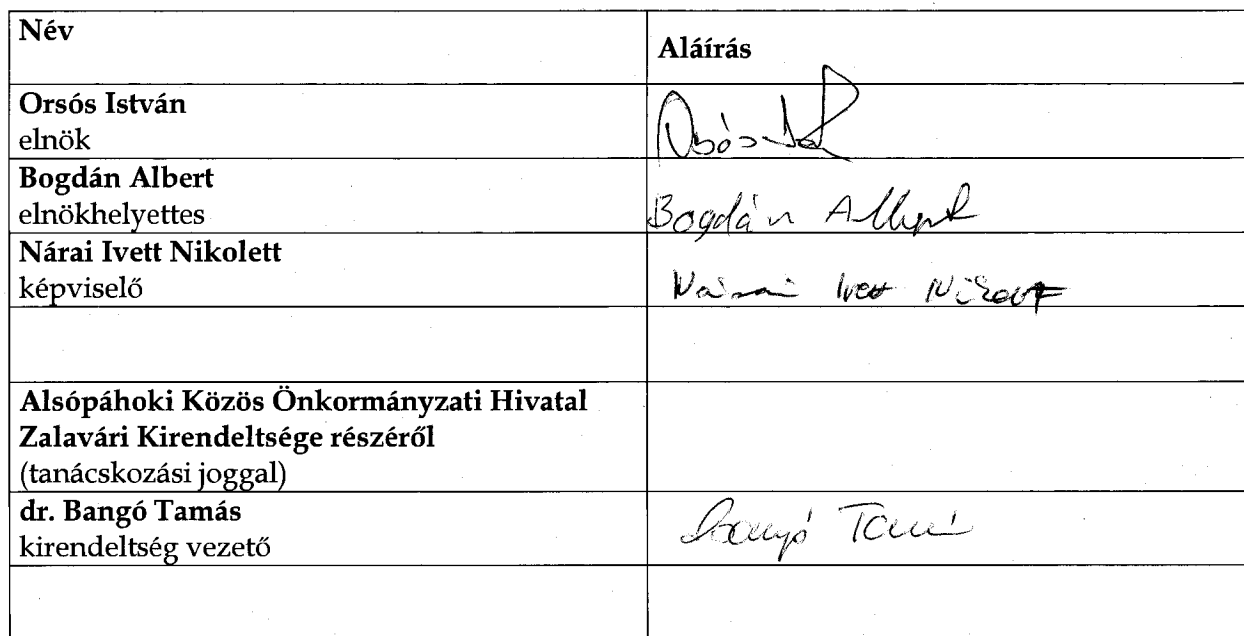 Név
Aláírás
Orsós István
elnök
Bogdán Albert
elnökhelyettes
Bogdán Albert
Nárai Ivett Nikolett
képviselő
Nárai Ivett Nikolett
Alsópáhoki Közös Önkormányzati Hivatal
Zalavári Kirendeltsége részéről
(tanácskozási joggal)
dr. Bangó Tamás
kirendeltség vezető
Bangó Tamás